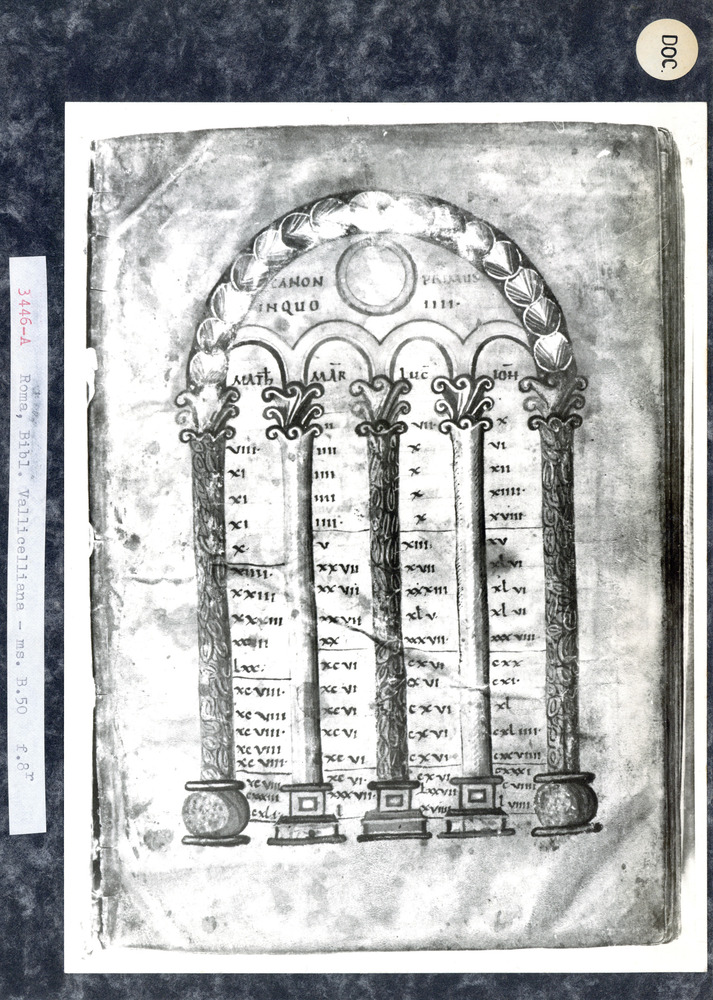 DOC.
3446-A Roma, Bibl. Vallicelliana - ms. B.50 f.8r
CANON PRIMUS
INQUO IIII·
MATH MAR LUC IOH
II VII· X
VIII· IIII X VI
XI IIII X XII
XI IIII X XIIII·
XI IIII· X XVIII·
X· V XIII· XV
XIIII· XXVII XVII XLVI
XXIII XXVII XXXIII XLVI
XXVII XLV XLVI
XX XXXVII XXXVIII
LXX· XCVI CXVI CXX
XCVIII· XCVI CXVI CXI·
XCVIII XCVI CXVI XL
XCVIII· XCVI CXVI CXLIIII
XCVIII
XCVIII XCVI CXVI
XCVIII XCVI· CXVI CXXXI